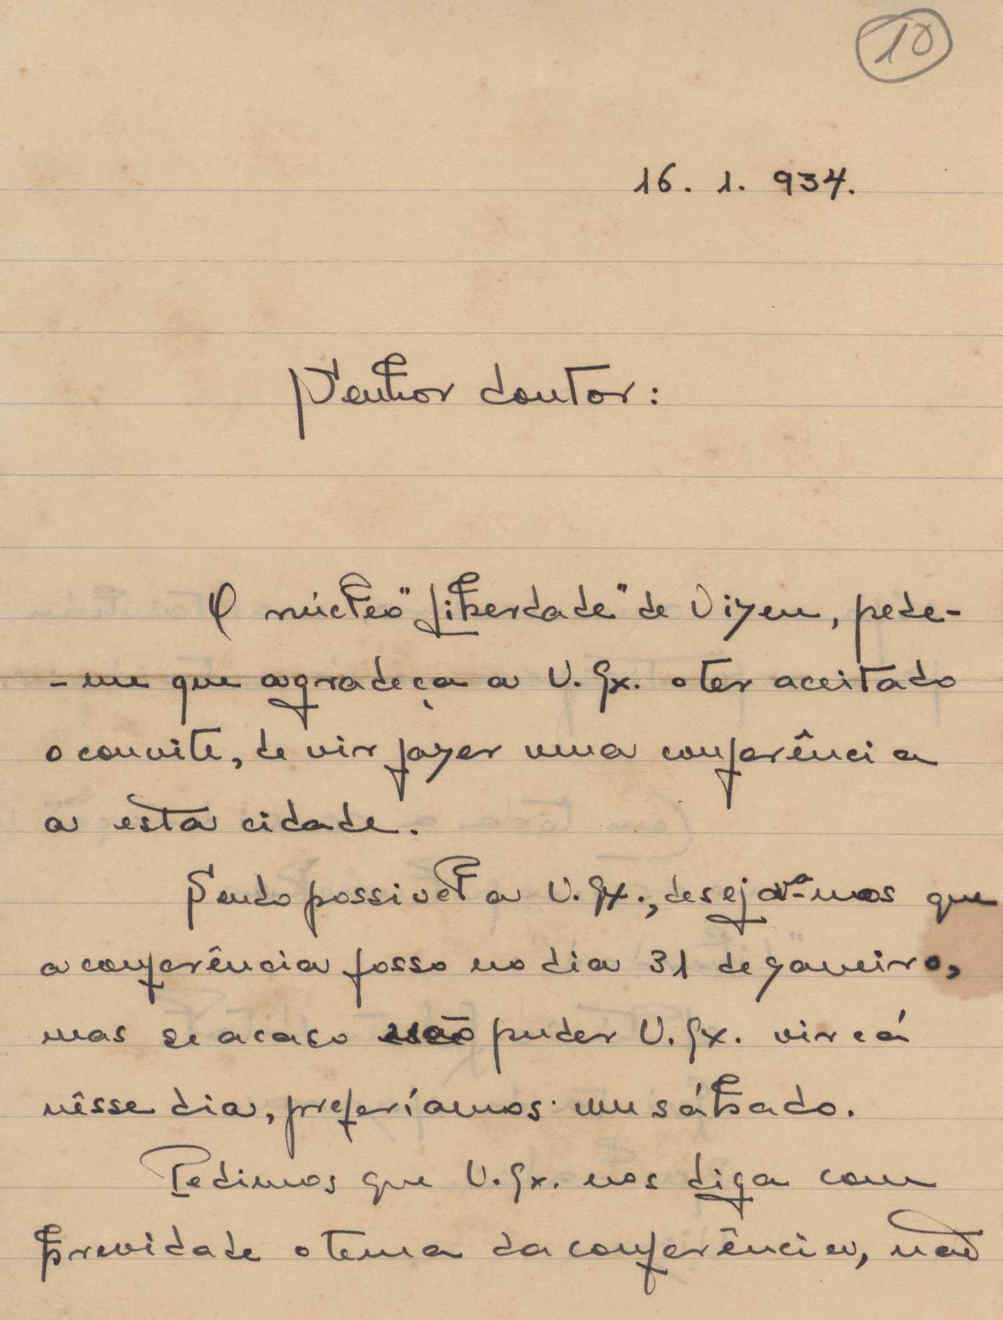 10
16. 1. 934.
Senhor doutor:
O núcleo "Liberdade" de Vizeu, pede-
-me que agradeça a V. Ex. o ter aceitado
o convite, de vir fazer uma conferência
a esta cidade.
Sendo possivel a V. Ex., desejava-mos que
a conferência fosse no dia 31 de janeiro,
mas se acaso não puder V. Ex. vir cá
nêsse dia, preferíamos num sábado.
Pedimos que V. Ex. nos diga com
brevidade o tema da conferência, não